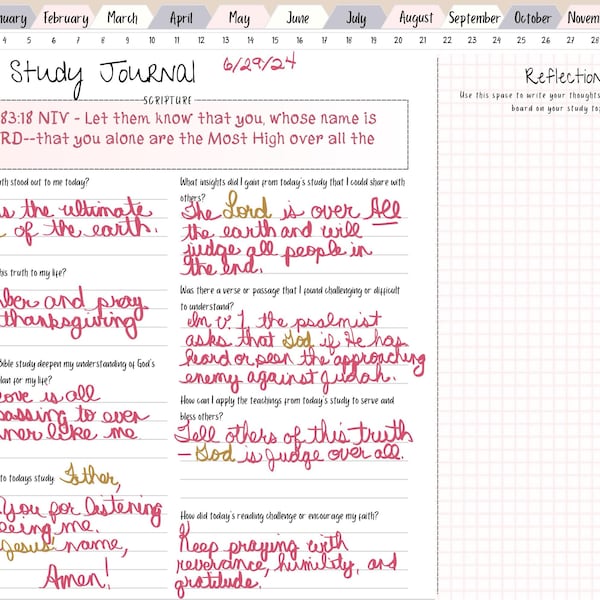 nuary February March April May June July August September October Novem
4 5 6 7 8 9 10 11 12 13 14 15 16 17 18 19 20 21 22 23 24 25 26 27 28
Study Journal 6/29/24
SCRIPTURE
83:18 NIV - Let them know that you, whose name is
RD--that you alone are the Most High over all the
uth stood out to me today?
s the ultimate
of the earth.
his truth to my life?
ber and pray
thanksgiving
Bible study deepen my understanding of God's
plan for my life?
ove is all
passing to even
ner like me
to todays study Father,
You for listening
eeing me.
Jesus' name,
Amen!
What insights did I gain from today's study that I could share with
others?
The Lord is over All
the earth and will
judge all people in
the end.
Was there a verse or passage that I found challenging or difficult
to understand?
In v 1 the psalmist
asks that God if He has
heard or seen the approaching
enemy against Judah.
How can I apply the teachings from today's study to serve and
bless others?
Tell others of this truth
— God is judge over all.
How did today's reading challenge or encourage my faith?
Keep praying with
reverance, humility, and
gratitude.
Reflection
Use this space to write your thoughts
board on your study top